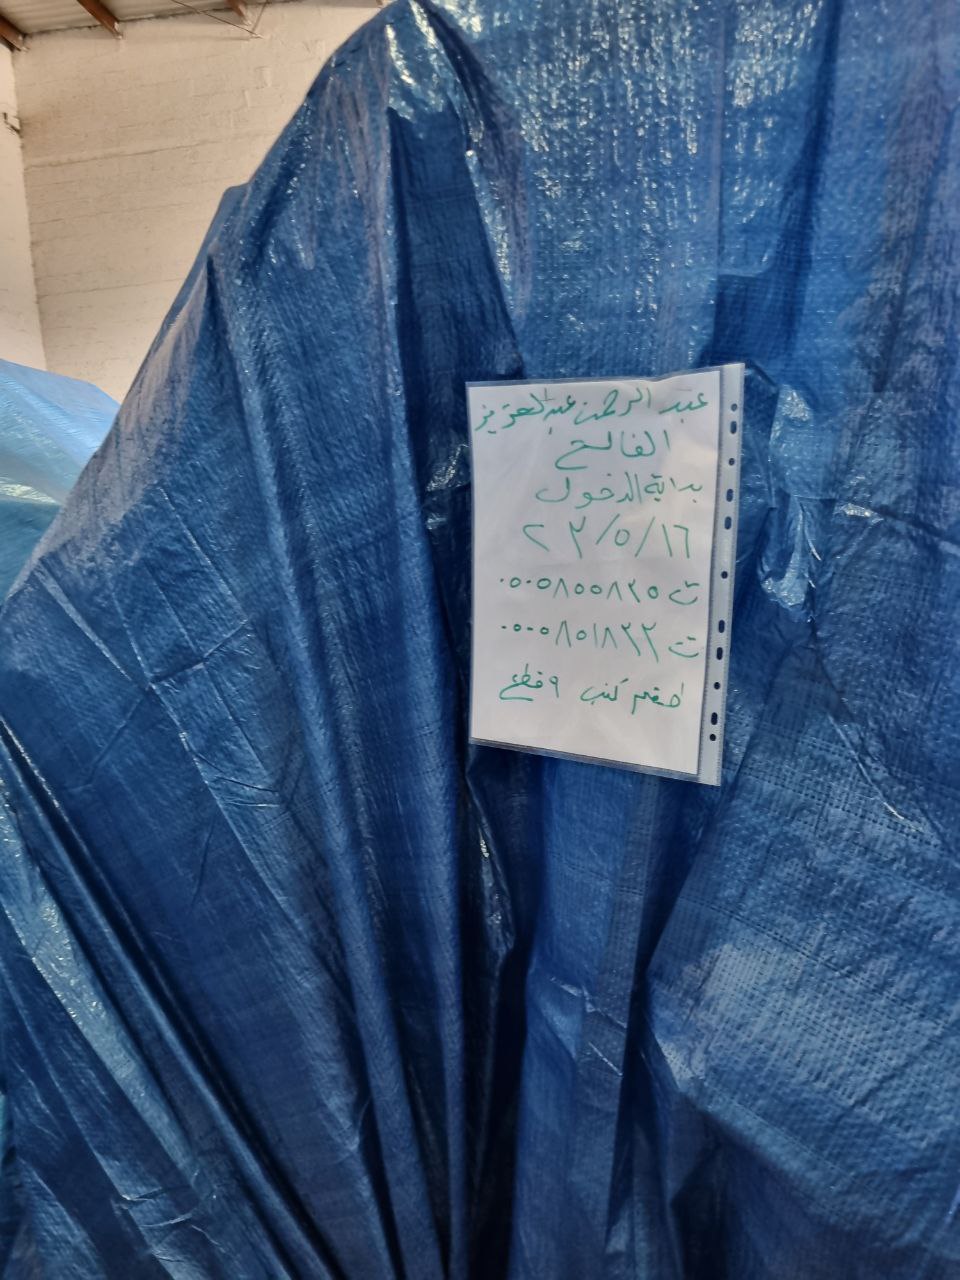 عبد الرحمن عبدالعزيز
الفالح
بداية الدخول
٢٣/٥/١٦
ت ٠٥٠٥٨٥٥٨٢٥
ت ٠٥٠٥٨٥١٨٢٢
طقم كنب ٩ قطع